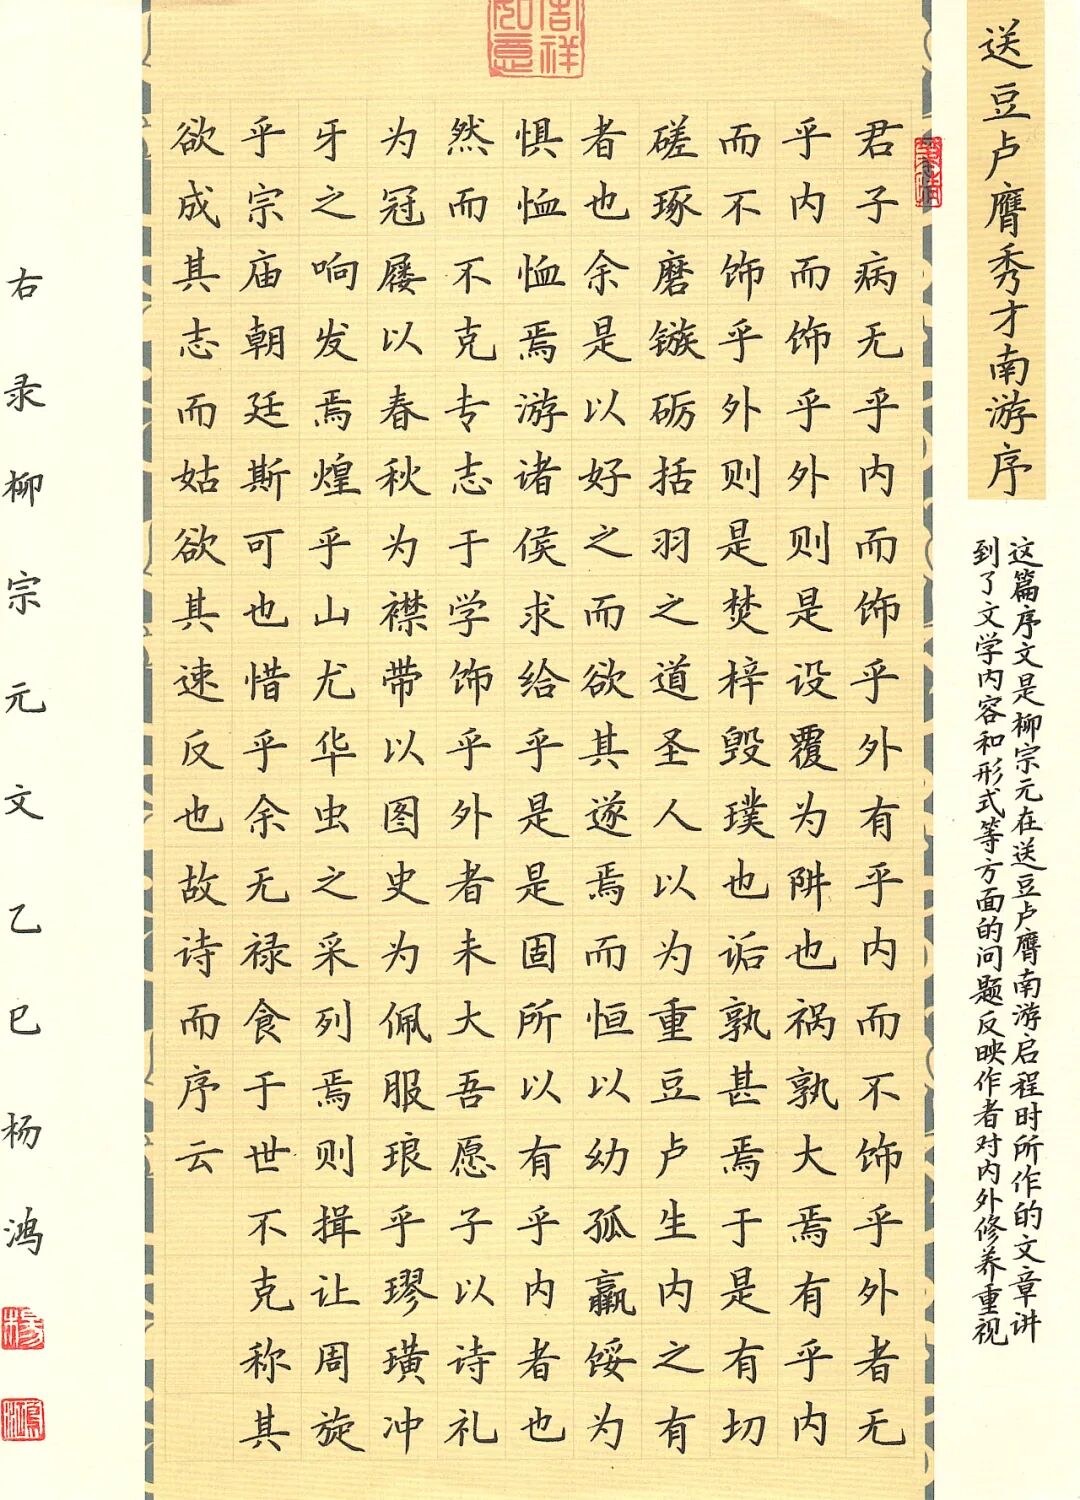 送豆卢膺秀才南游序
这篇序文是柳宗元在送豆卢膺南游启程时所作的文章讲
到了文学内容和形式等方面的问题反映作者对内外修养重视
君子病无乎内而饰乎外有乎内而不饰乎外者无
乎内而饰乎外则是设覆为阱也祸孰大焉有乎内
而不饰乎外则是焚梓毁璞也诟孰甚焉于是有切
磋琢磨镞砺括羽之道圣人以为重豆卢生内之有
者也余是以好之而欲其遂焉而恒以幼孤羸馁为
惧恤恤焉游诸侯求给乎是是固所以有乎内者也
然而不克专志于学饰乎外者未大吾愿子以诗礼
为冠屦以春秋为襟带以图史为佩服琅乎璆璜冲
牙之响发焉煌乎山尤华虫之采列焉则揖让周旋
乎宗庙朝廷斯可也惜乎余无禄食于世不克称其
欲成其志而姑欲其速反也故诗而序云
吉祥
如意
右录柳宗元文乙巳杨鸿
楊
鴻